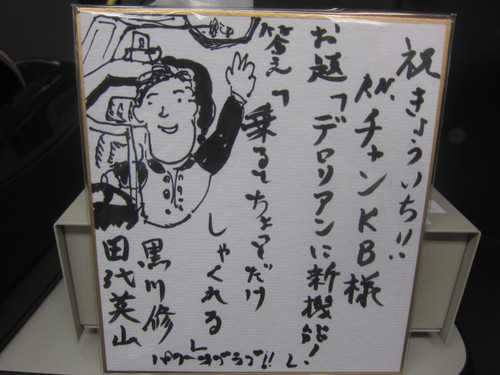 祝きょういち!!
バチャンKB様
お題「デロリアンに新機能!
答え「乗るとちょっとだけ
しゃくれる」
黒川修
田代英山
パワーオブラブ!!